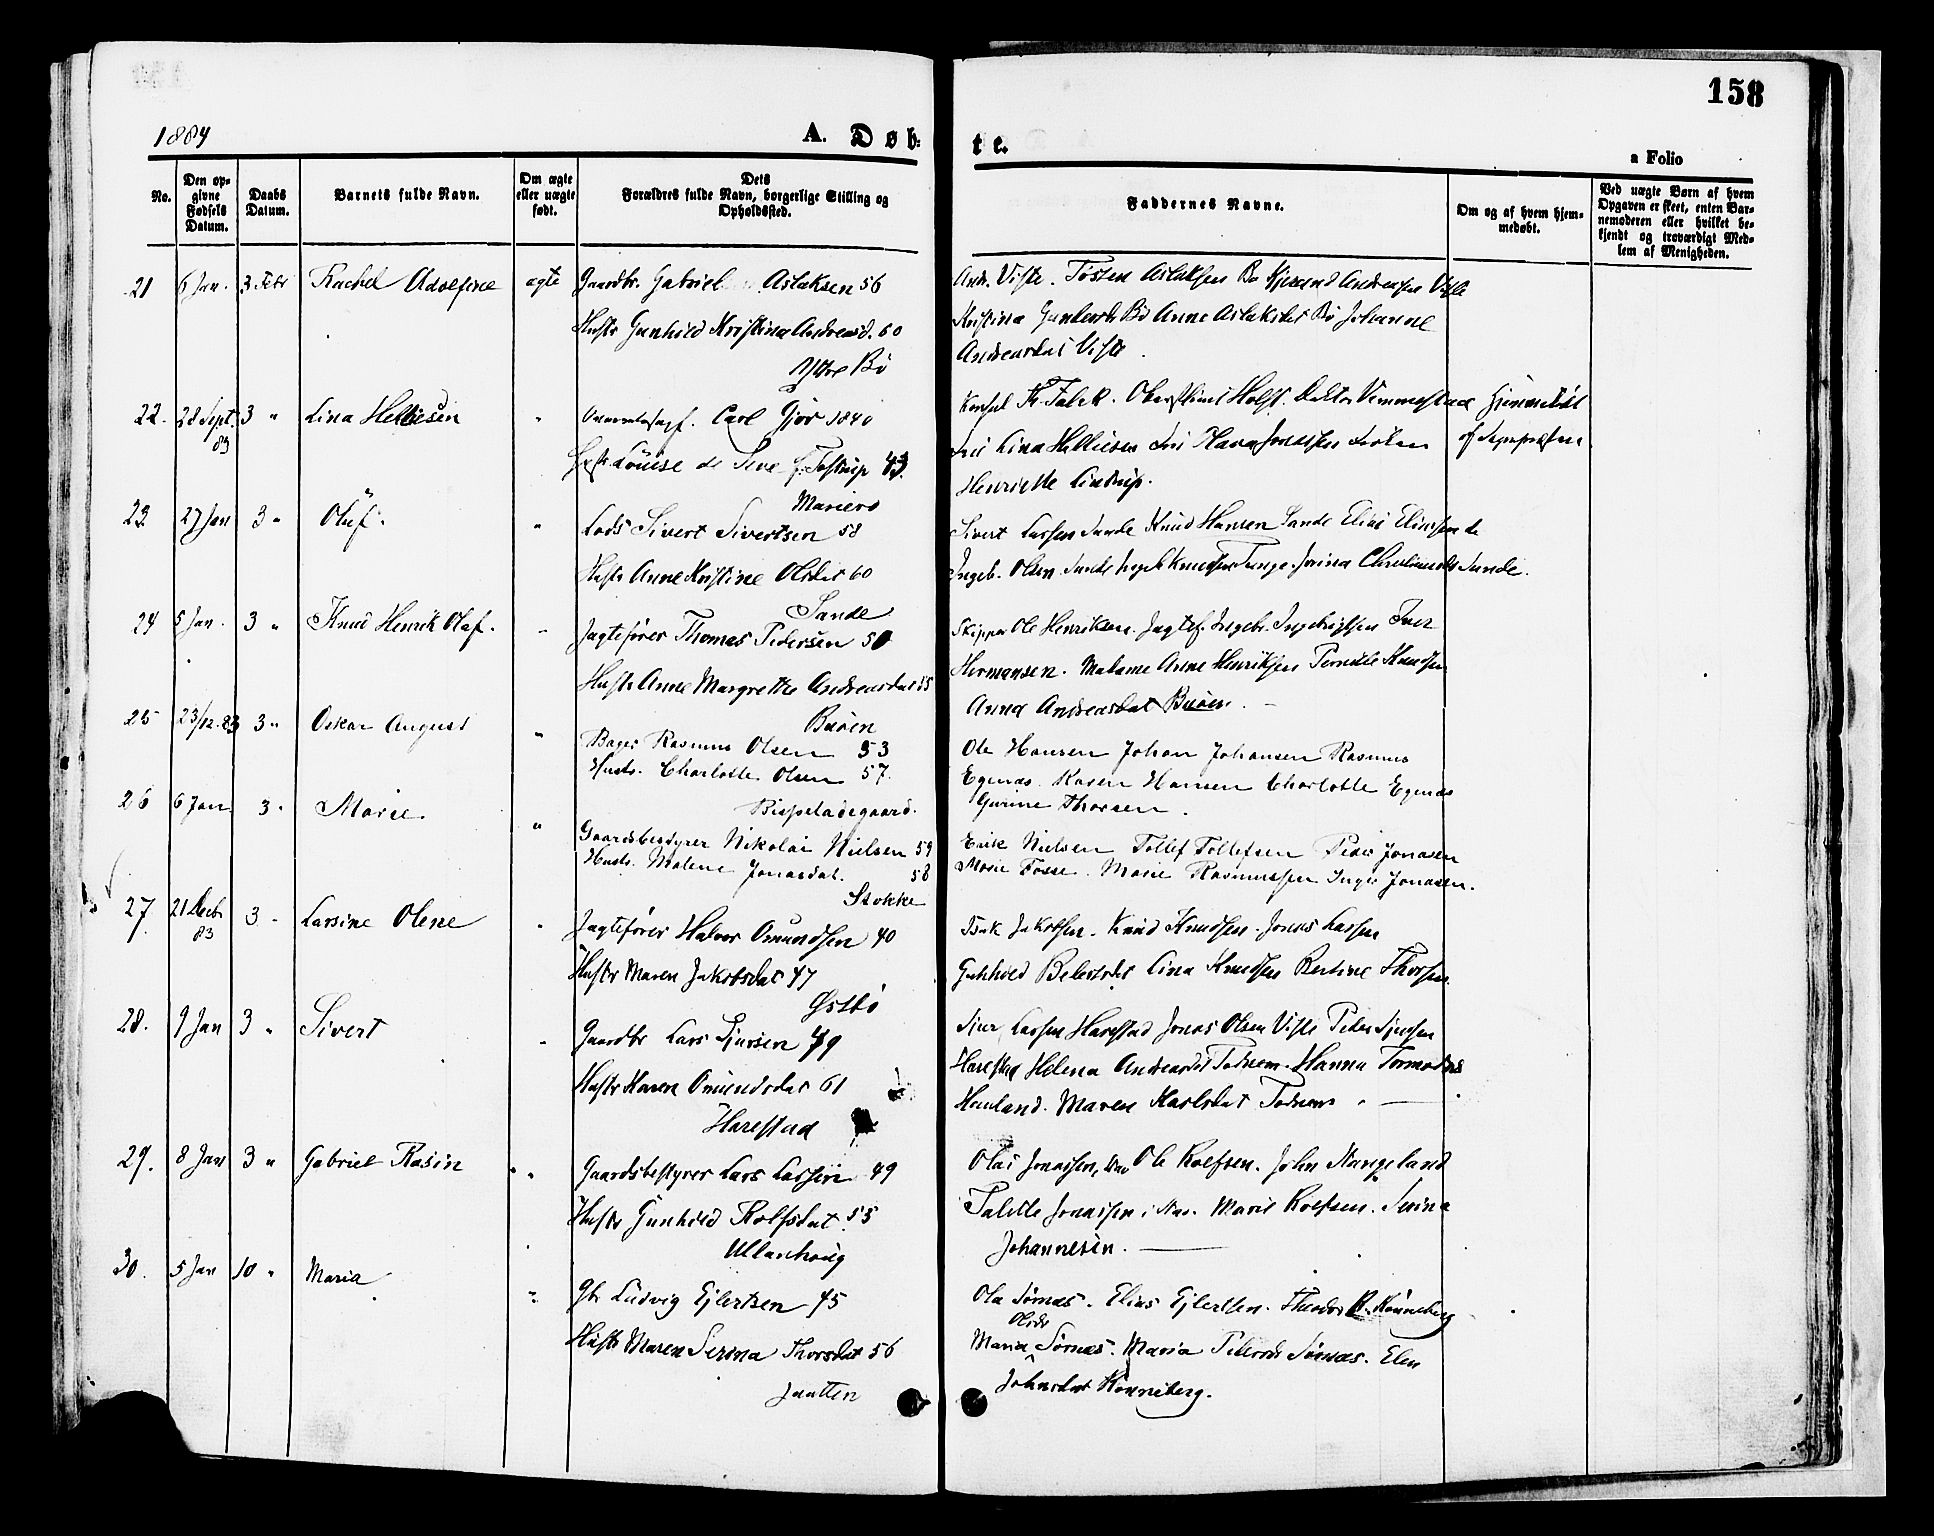 158
1884
A. Døb-
te.
a Folio
No.
Den opgivne Fødsels Datum.
Daabs Datum.
Barnets fulde Navn.
Om ægte eller uægte født.
Dets
Forældres fulde Navn, borgerlige Stilling og Opholdssted.
Faddernes Navne.
Om og af hvem hjemmedøbt.
Ved uægte Børn af hvem Opgaven er skeet, enten Barnemoderen eller hvilket bekjendt og troværdigt Medlem af Menigheden.
21 6 Jan. 3 Febr Rachel Adolfine ægte Gaardbr. Gabriel Aslaksen 56
Hustr Gunhild Kristina Andreasd. 60
Ytre Bø
Andr. Viste. Tosten Aslaksen Bø Andreasen Viste
Kristina Bø Anne Aslaksdat Bø Johanne
Andreasdat Viste.
22. 28 Sept. 83 3 " Lina Helliesen " Carl Gjør 1840
Hustr Louise de Seve f. Tostrup 43.
Mariero
Konsul Fr. Falck. Holst. Doktor Vimmestad
Lina Helliesen Jonassen Frøken
Henriette
23 27 Jan 3 " Oluf. " Lods Sivert Sivertsen 58
Hustr Anne Kristine Olsdat 60
Sande
Sivert Larsen Sande Knud Hansen Sande Elias
Ingeb. Olsen Sande Knudsen Tunge. Jorina Sande.
24 5 Jan. 3 " Knud Henrik Olaf. " Jagtefører Thomas Pedersen 50
Hustr Anne Margrethe Andreasdat 55
Buøen
Skipper Ole Henriksen. Jagtef. Ingebr. Ingebrigtsen Iver
Hermansen. Madame Anne Henriksen Pernille Knudsen
Anna Andreasdat Buøen. —
25 23/12. 83 3 " Oskar August " Bager Rasmus Olsen 53
Hustr. Charlotte Olsen 57.
Bispeladegaard.
Ole Hansen Johan Johansen Rasmus
Egenæs. Karen Hansen Charlotte Egenæs
Gurine Thorsen.
26 6 Jan. 3 " Marie. " Gaardsbestyrer Nikolai Nielsen 59
Hustr. Malene Jonasdat. 58
Stokke
Enok Nielsen Tollef Tollefsen Peder Jonasen
Marie Fosse. Marie Rasmussen Inger Jonasen.
27. 21 Decb 83 3 " Larsine Olene " Jagtefører Halvor Omundsen 40
Hustr Maren Jakobsdat 47
Østbø
Isak Jakobsen. Knud Knudsen. Jonas Larsen
Gunhild Lina Knudsen Bertine Thorsen.
28. 9 Jan 3 " Sivert " Gaardbr Lars Sjursen 49
Hustr Karen Omundsdat 61
Harestad
Sjur Larsen Harestad Jonas Olsen Viste Peder Sjursen
Harestad Helena Andreasdat Todnem. Hanna Tormodsd
Maren Karlsdat Todnem
29. 8 Jan 3 " Gabriel Rasin " Gaardsbestyrer Lars Larsen 49
Hustr Gunhild Rolfsdat 55
Ullanhoug
Olai Jonassen, Ole Rolfsen. John
Talette Jonassen Marie Rolfsen. Serina
Johannesen. —
30. 5 Jan 10 " Maria " Gbr Ludvig Ejlertsen 45
Hustr Maren Serina Thorsdat 56
Jaatten
Ola Sørnæs. Elias Ejlertsen. Theodor R. Rønneberg
Olsdr
Maria Sørnæs. Maria Pedersdr Sørnæs. Elen
Johnsdat Rønneberg.